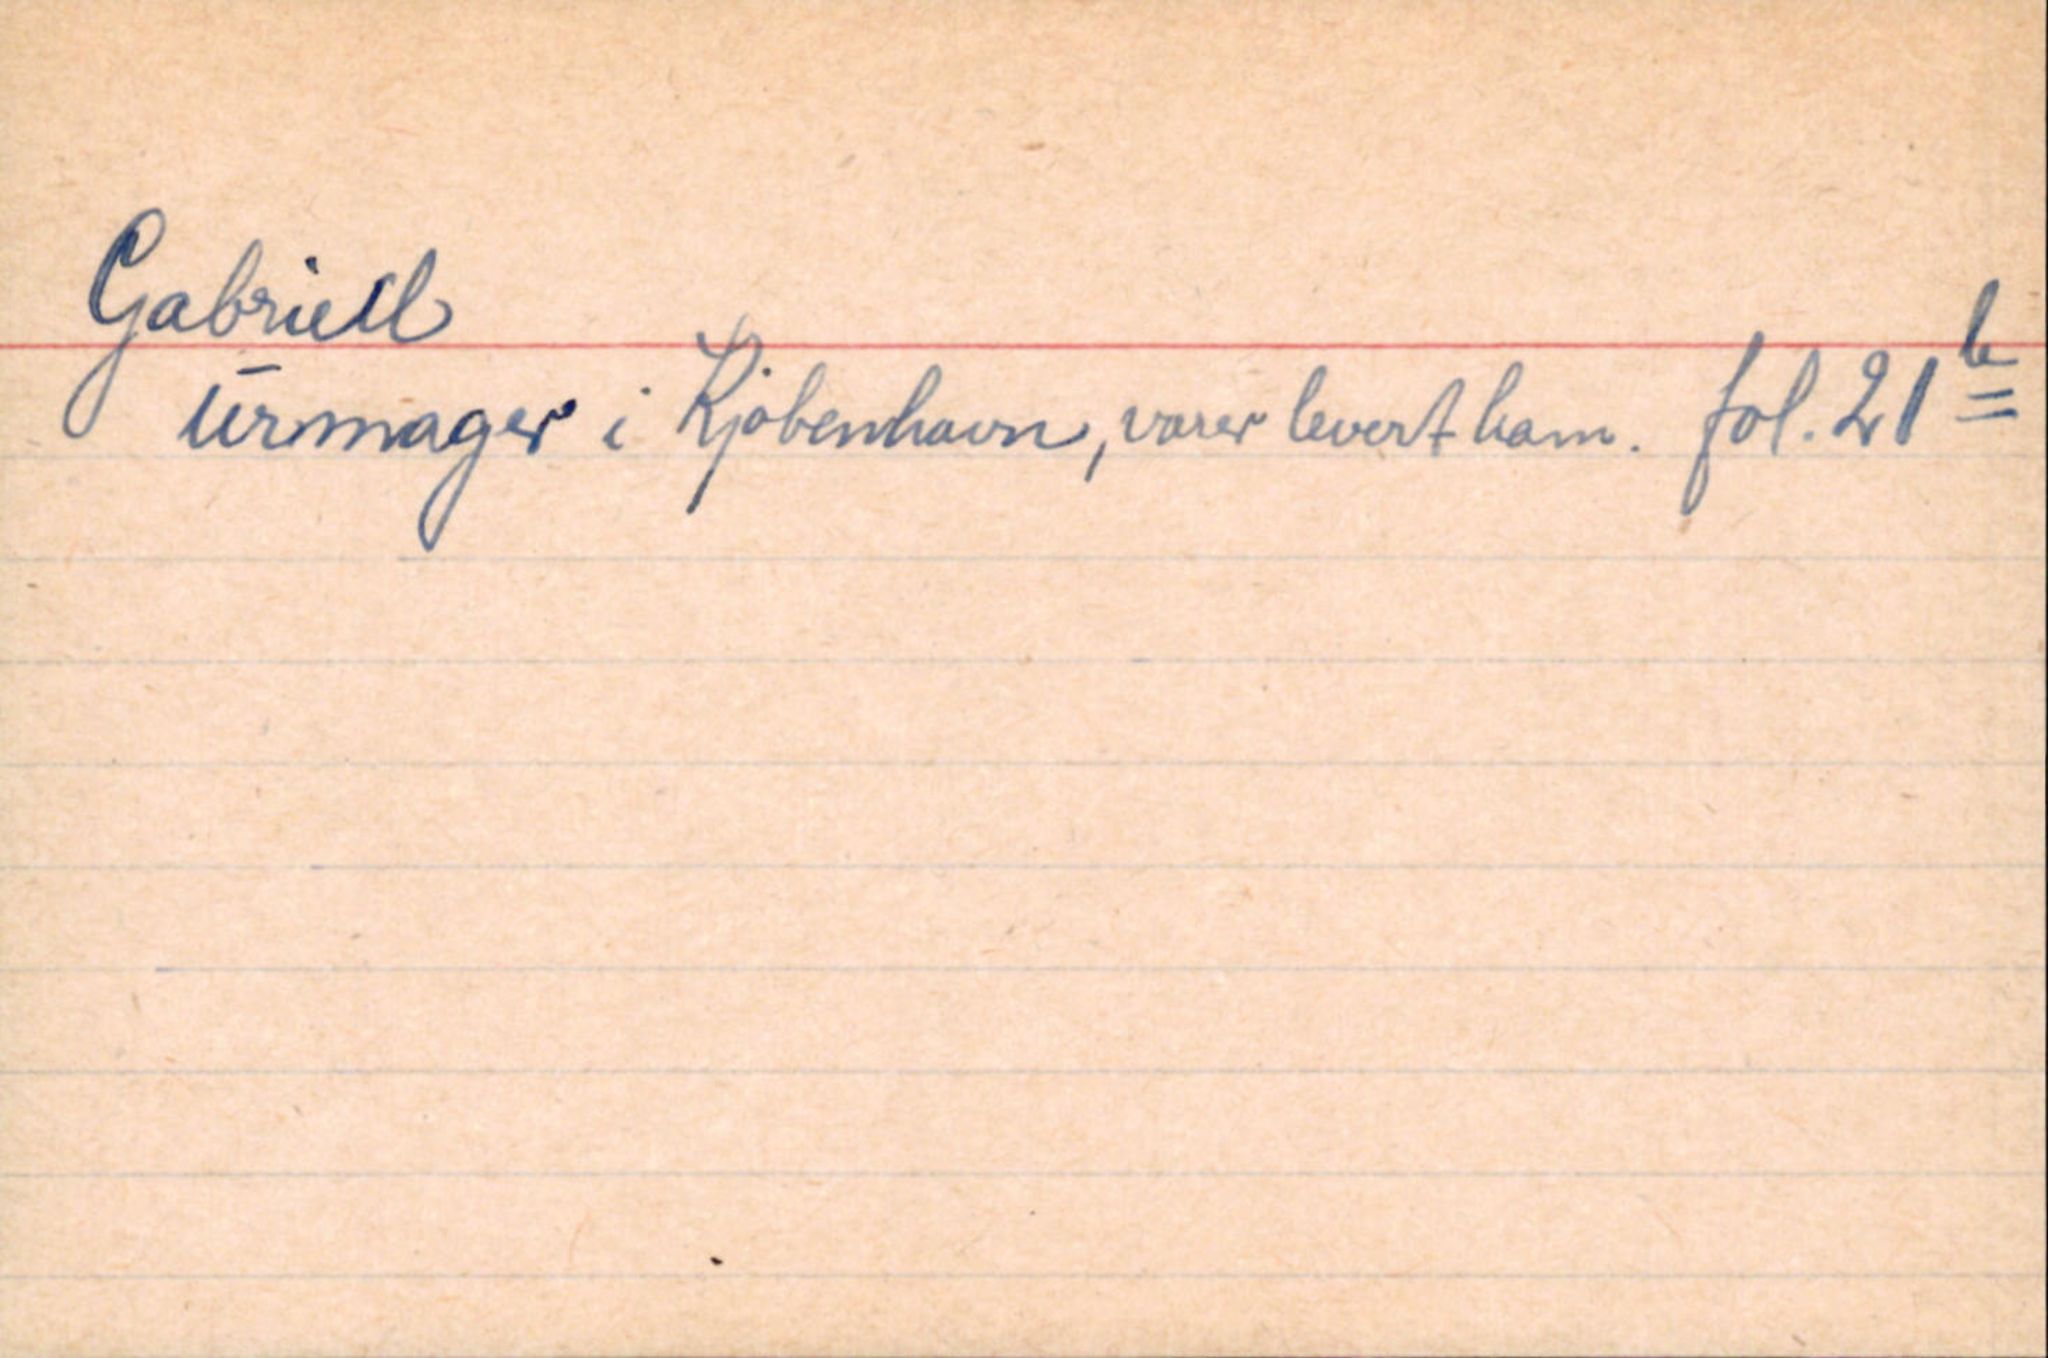 Gabriell
Urmager i Kjøbenhavn, varer levert ham. fol. 21b